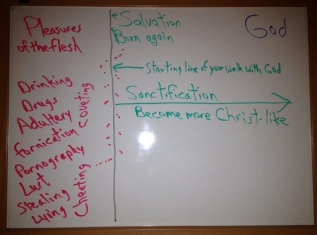 Pleasures
of the flesh
Drinking
Drugs
Adultery
Fornication
Pornography
Lust
Stealing
Lying
Coveting
Cheating
Salvation
Born again
God
Starting line of your walk with God
Sanctification
Become more Christ-like